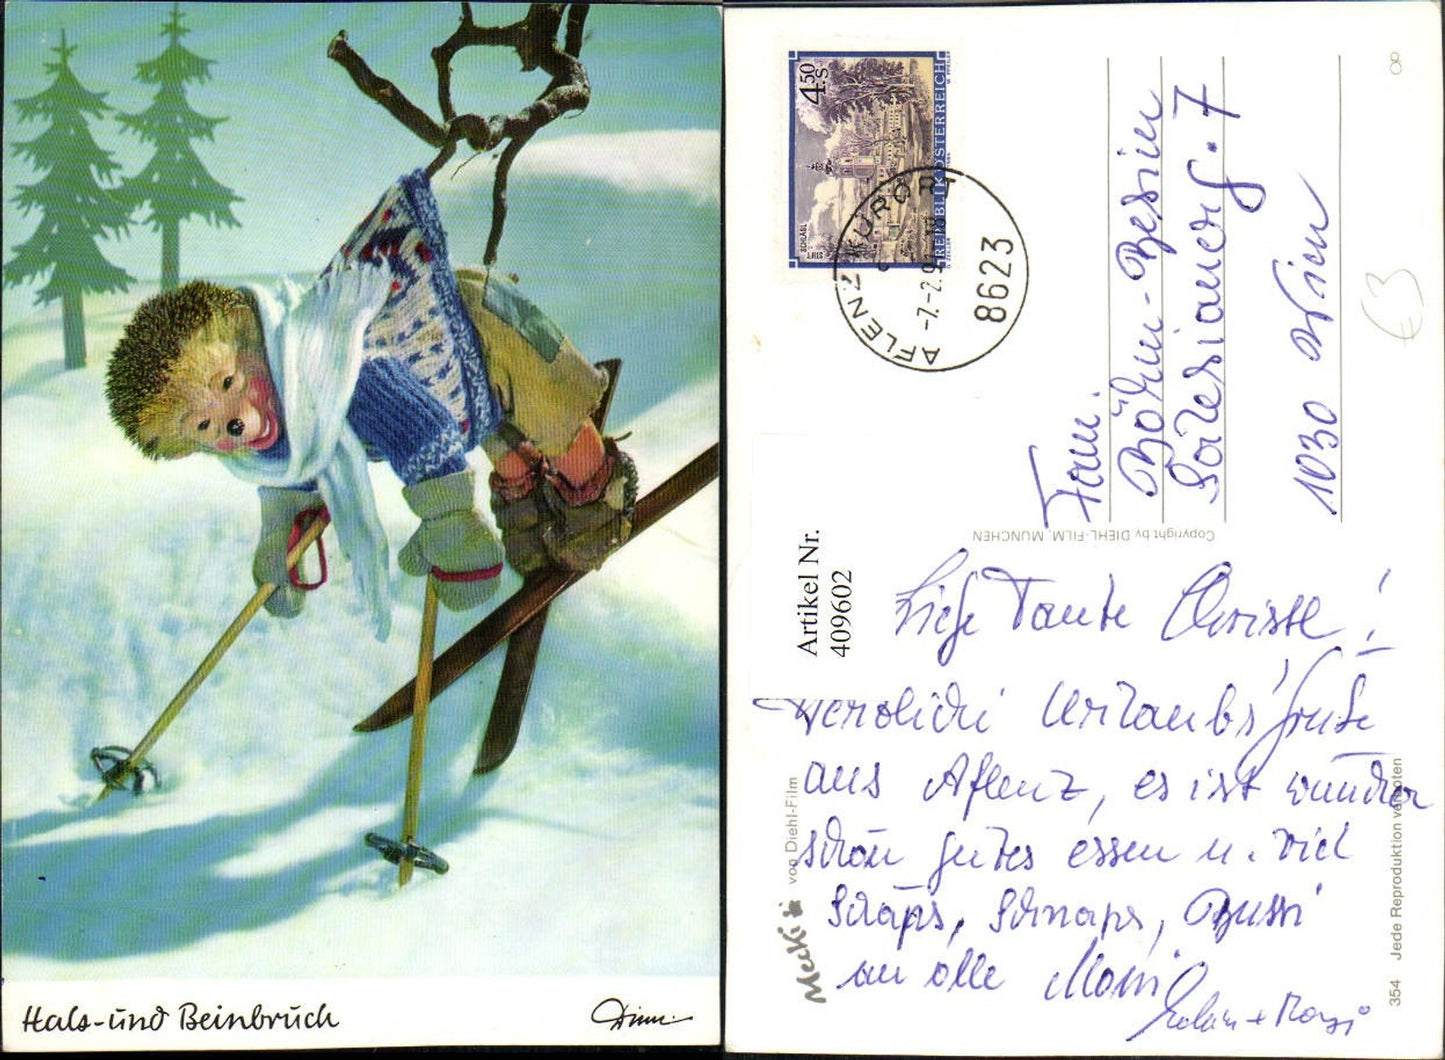 Hals- und Beinbruch
Diehl
4.50
S
REPUBLIK ÖSTERREICH
STIFT SCHLÄGL
AFLENZ KURORT
-7.-2.9
8623
Fam.
Böhm-Besin
Salesianerg. 7
1030 Wien
€3
Copyright by DIEHL-FILM, MÜNCHEN
Artikel Nr.
409602
Liebe Tante Christl!
Herzliche Urlaubsgrüße
aus Aflenz, es ist wunder
schön gutes essen u. viel
Schnaps, Bussi
an alle Moni
Mecki
von Diehl-Film
354 Jede Reproduktion verboten